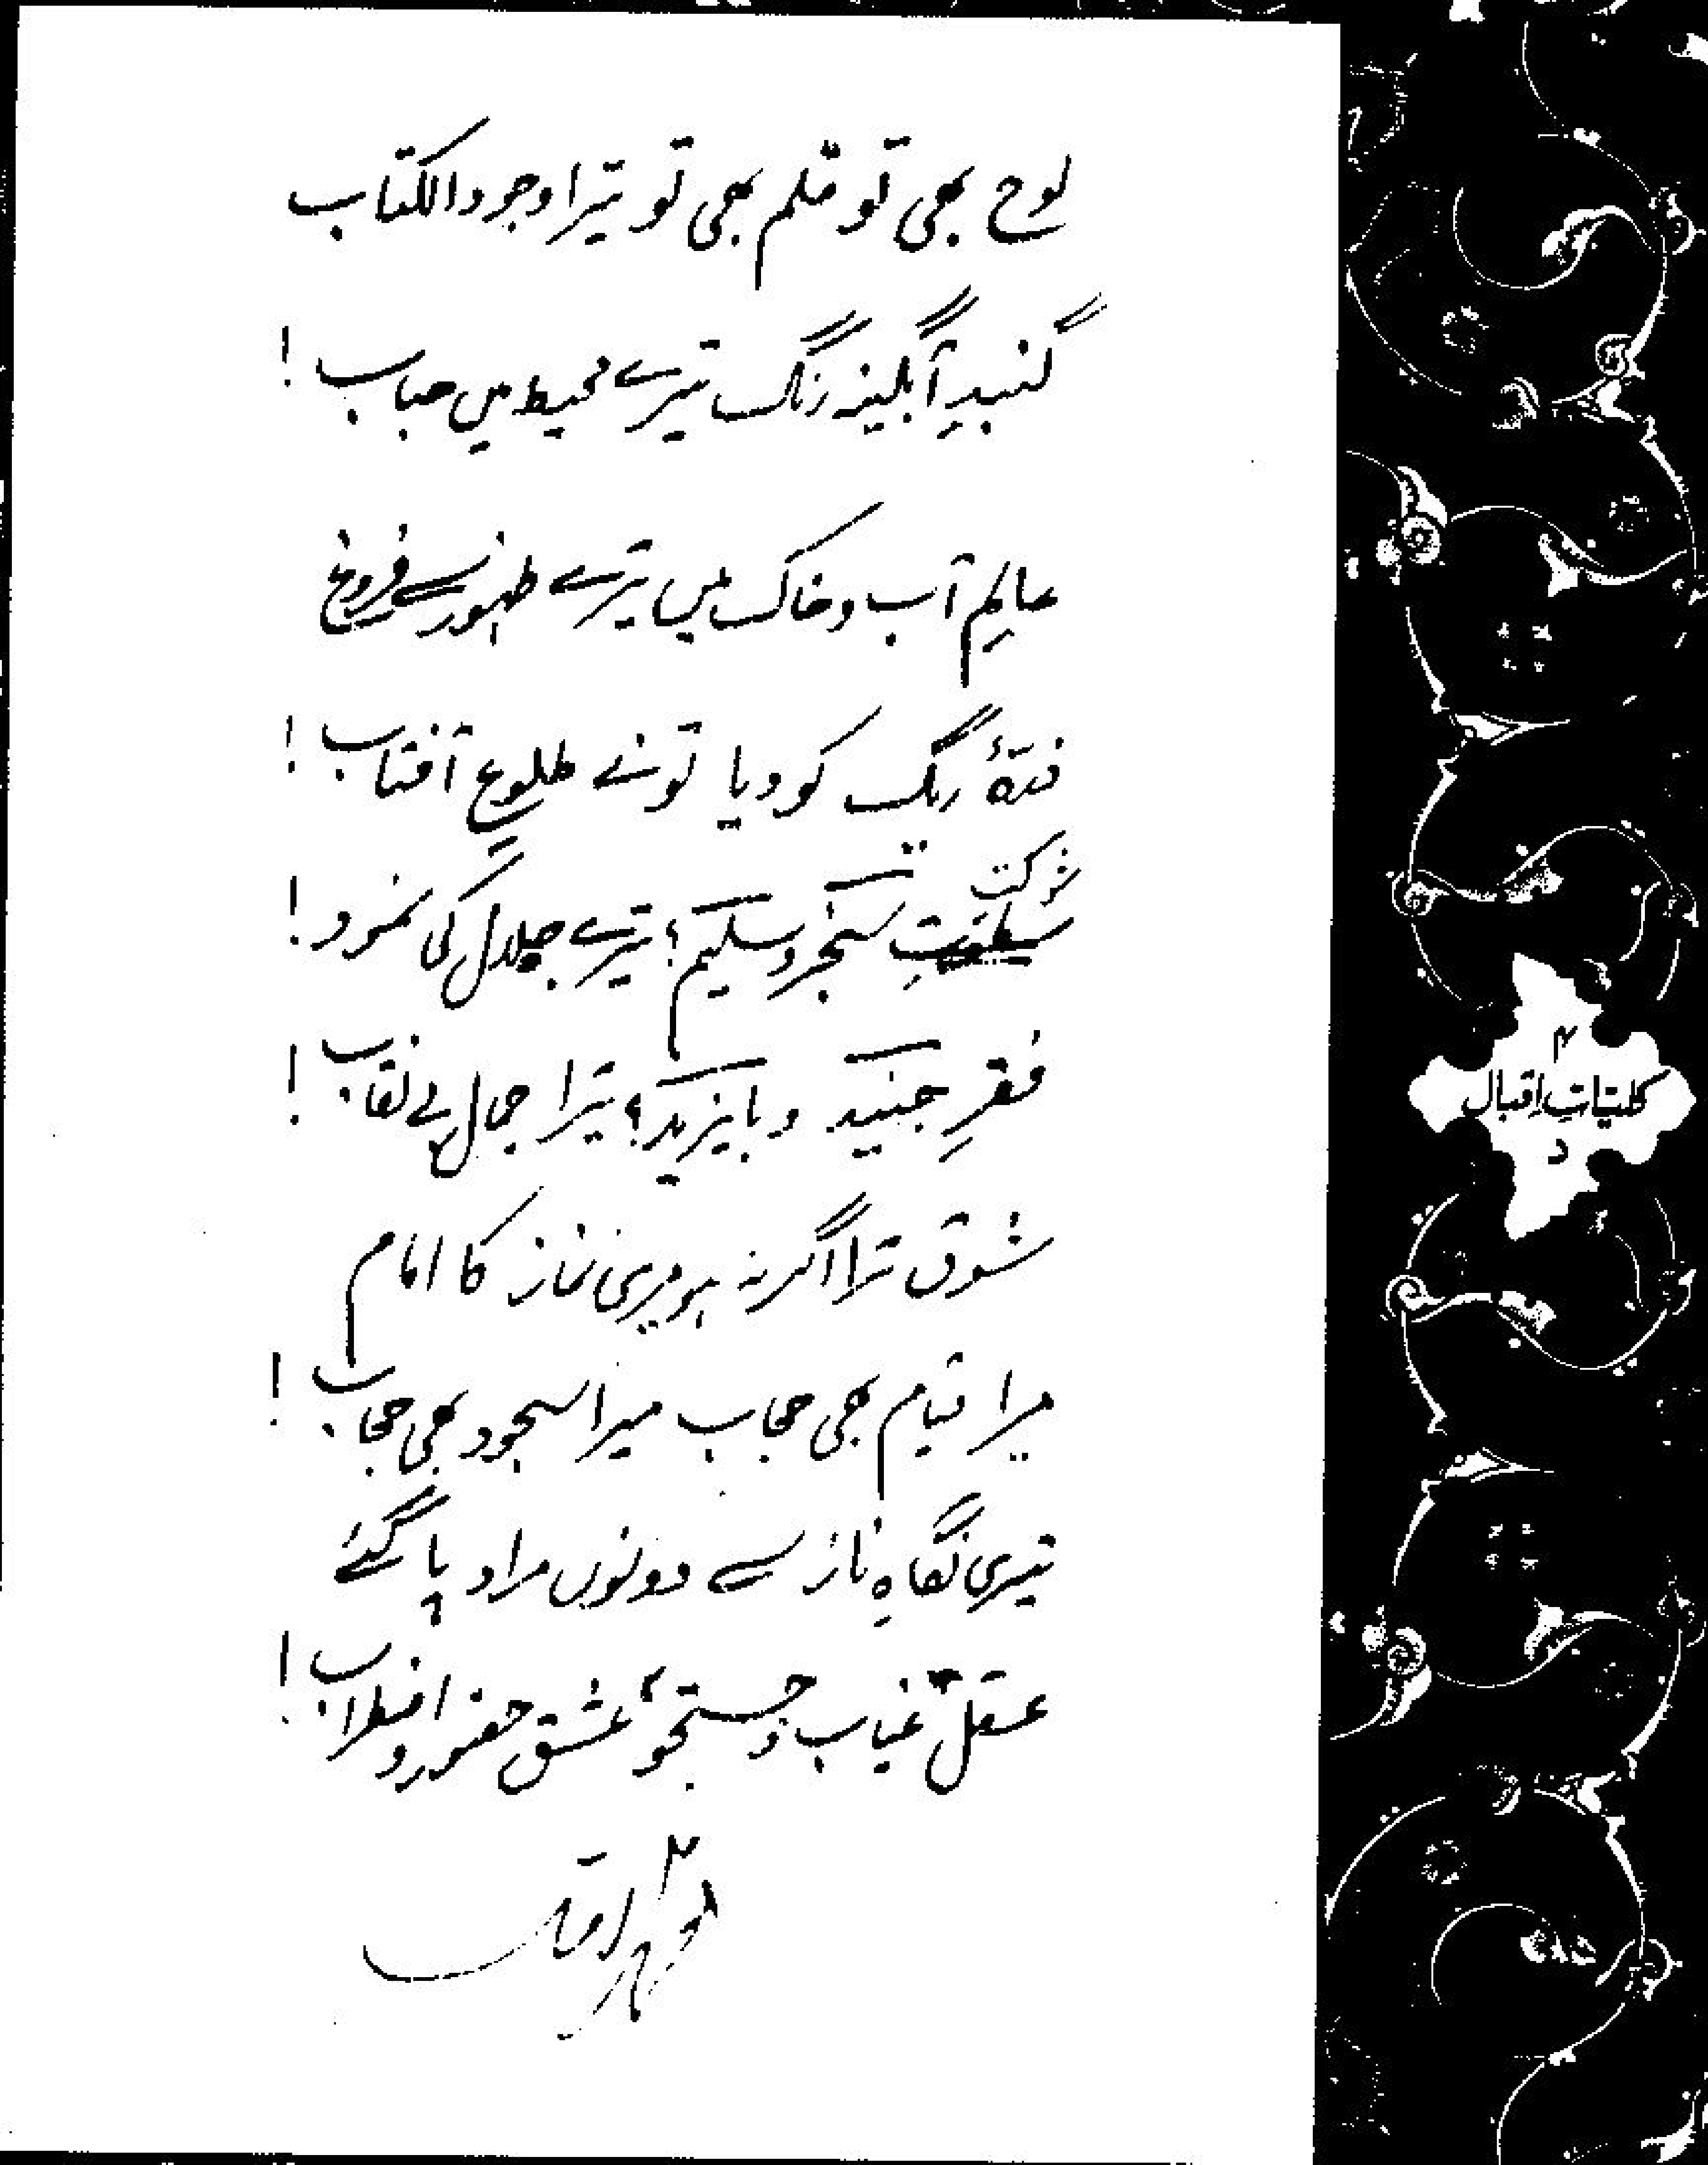 لوح بھی تو قلم بھی تو تیرا وجود الکتاب
گنبدِ آبگینہ رنگ تیرے محیط میں حباب!
عالمِ آب و خاک میں تیرے ظہور سے فروغ
ذرّۂ ریگ کو دیا تو نے طلوعِ آفتاب!
شوکت
سطوتِ سنجر و سلیم؟ تیرے جلال کی نمود!
فقرِ جنید و بایزید؟ تیرا جمال بے نقاب!
شوق ترا اگر نہ ہو میری نماز کا امام
میرا قیام بھی حجاب میرا سجود بھی حجاب!
تیری نگاہِ ناز سے دونوں مراد پا گئے
عقل، غیاب و جستجو، عشق حضور و اضطراب!
محمد اقبال
کلیاتِ اقبال